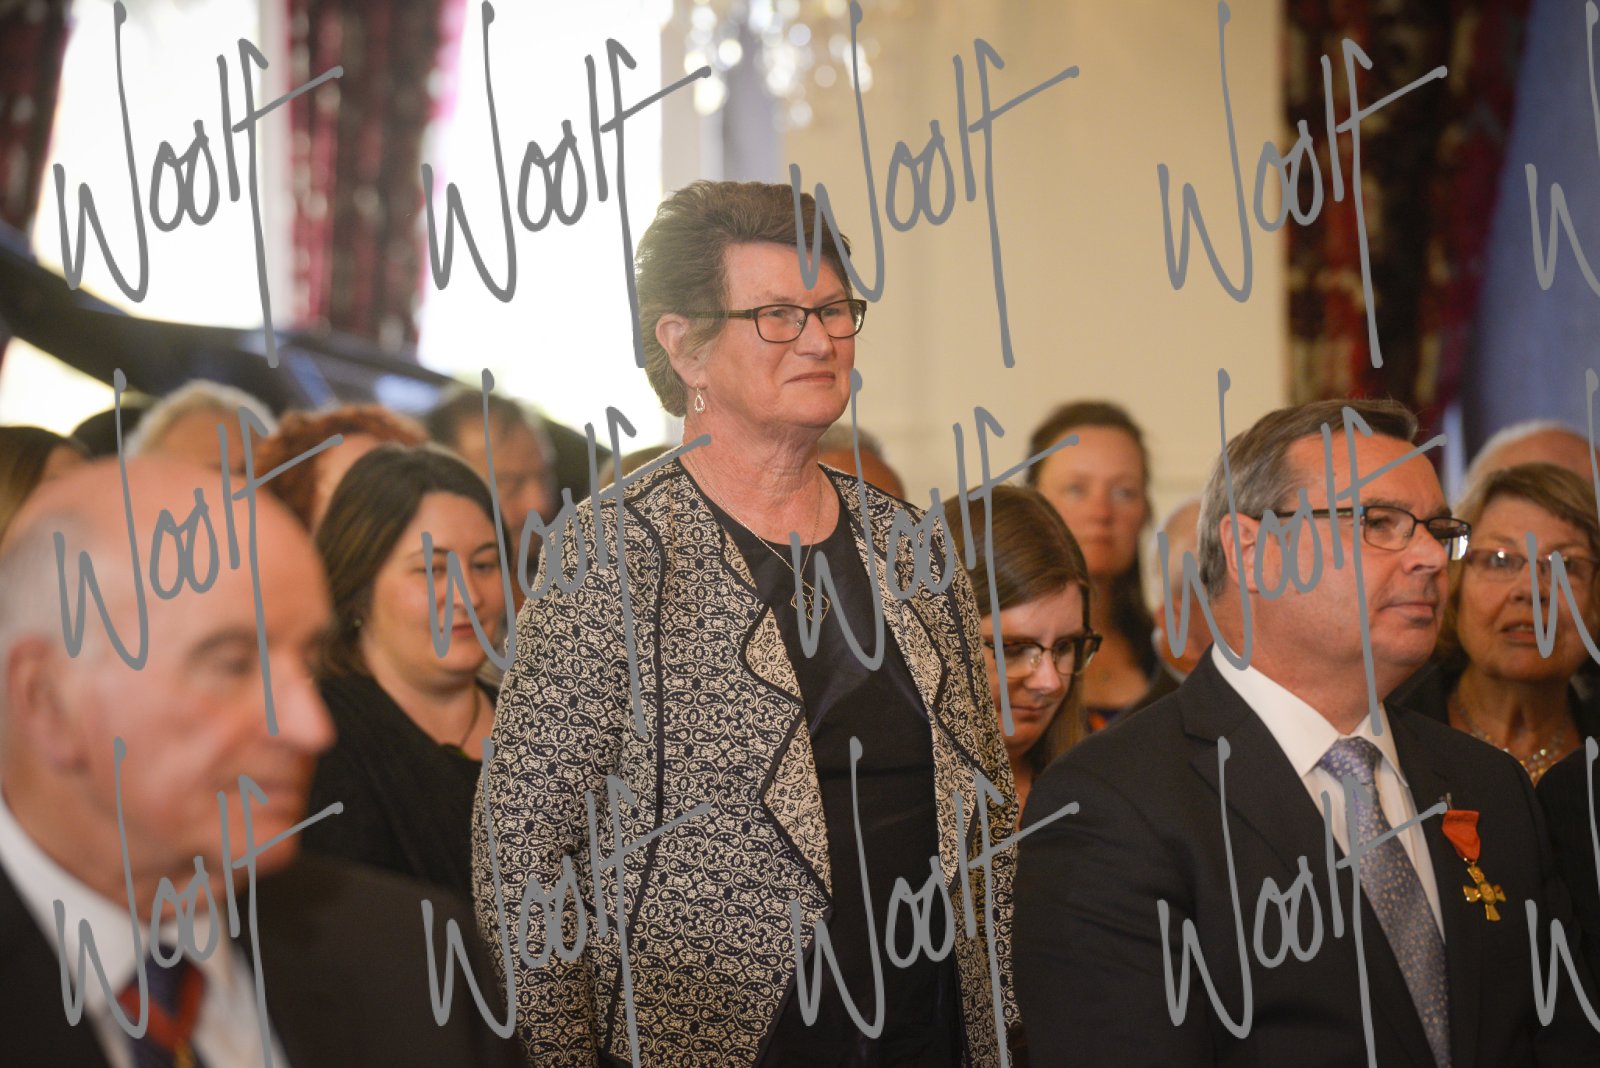 Woolf Woolf Woolf Woolf W
Woolf Woolf Woolf Woolf W
Woolf Woolf Woolf Woolf W